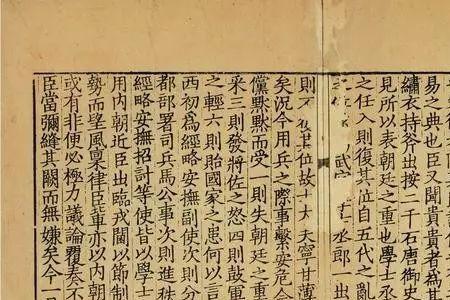 易之典也臣又聞貴貴者為其
繡衣持斧出按二千石唐御史
見所以表朝廷之重也學士丞
之任入則復其位自五代之亂
武 丞郎一出
則不 位故 大 寧甘薄
矣況今用兵之際事繫安危今
黨默默而受一則失朝廷之重
采三則發將佐之怒四則鼓軍
之輕六則貽國家之患何以言
西初為經略安撫副使次則分
都部署司兵馬公事次則進秩
經略安撫招討等使皆以學士
用內朝近臣出臨戎閫以節制
勢而望風稟律臣輩亦以內朝
或有非便必極力議論覆奏不
臣當彌縫其闕而無嫌矣今一